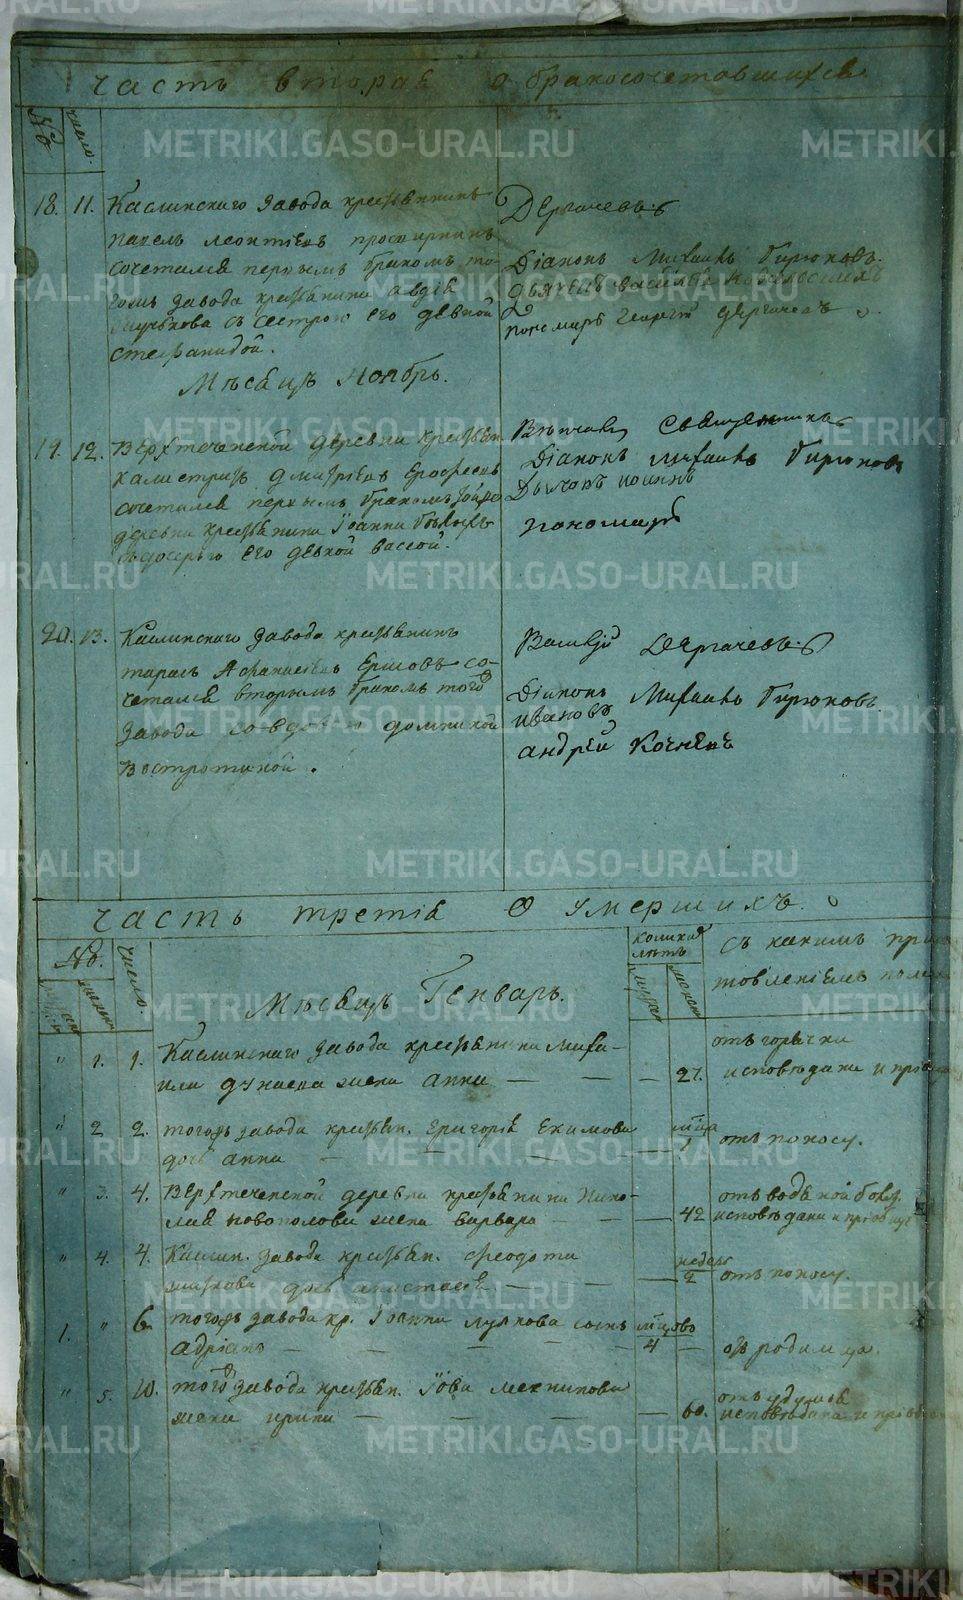 Часть вторая о бракосочетовшихся
№
число.
18. 11. Каслинскаго завода крестьянинъ
Павелъ Леонтіевъ
сочетался первымъ бракомъ то-
гожъ завода крестьянина Авдія
съ сестрою его девкой
Стефанидой.
Дергачевъ
Діаконъ Михаилъ Бирюковъ.
Дьячекъ Василій
пономарь Георгій Дергачевъ
Мѣсяцъ Ноябрь.
19. 12. Верхтеченской деревни крестьян.
Калистратъ Дмитріевъ Ерофеевъ
сочетался первымъ бракомъ тойже
деревни крестьянина Іоанна
дочерью его девкой Вассой.
Священникъ
Діаконъ Михаилъ Бирюковъ
Дьячокъ
пономарь
20. 13. Каслинскаго завода крестьянинъ
Тарасъ Афанасіевъ Ершовъ со-
четался вторымъ бракомъ того
завода со вдовой Домникой
Востротиной.
Василій Дергачевъ
Діаконъ Михаилъ Бирюковъ.
Ивановъ
Андрей Кочневъ
Часть третія о умершихъ.
№.
число.
Мѣсяцъ Генварь.
колика
лѣтъ
съ какимъ при
товленіемъ
" 1. 1. Каслинскаго завода крестьянина Миха-
ила Дунаева жена Анна — — — 27. отъ горячки
исповѣдана и прі
" 2 2. тогожъ завода крестьян. Григорія Екимова
дочь Анна — 1 отъ поносу.
" 3. 4. Верхтеченской деревни крестьянина Нико-
лая Новополова жена Варвара — — — 42 отъ водяной болѣз.
исповѣдана и пріобщ
" 4. 4. Каслин. завода крестьян. Феодота
дочь Анастасія — — недель 2 отъ поносу.
1. " 6. тогожъ завода кр. Іоанна сынъ
Адріанъ — — — 4 — отъ родимца.
" 5. 10. того завода крестьян. Іова
жена Ирина — — — — 60. отъ удушья
исповѣдана и пріобщ
METRIKI.GASO-URAL.RU